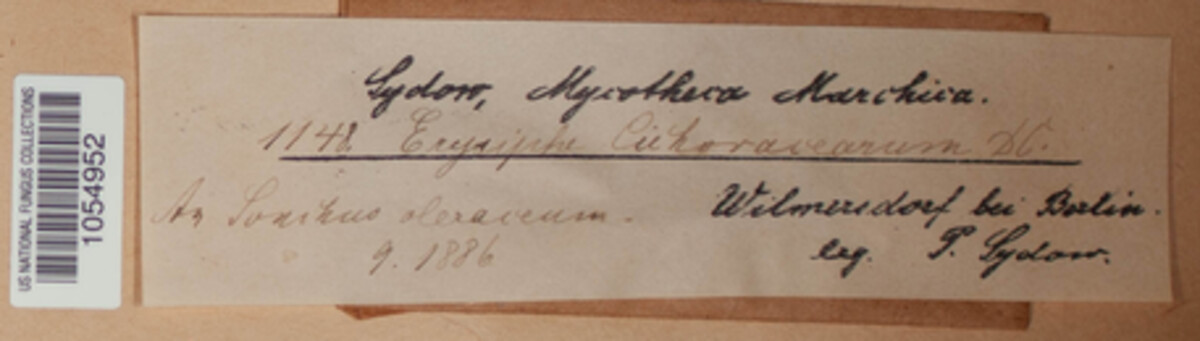 US NATIONAL FUNGUS COLLECTIONS
1054952
Sydow, Mycotheca Marchica.
1148. Erysiphe Cichoracearum DC.
An Sonchus oleraceum.
9. 1886
Wilmersdorf bei Berlin.
leg. P. Sydow.